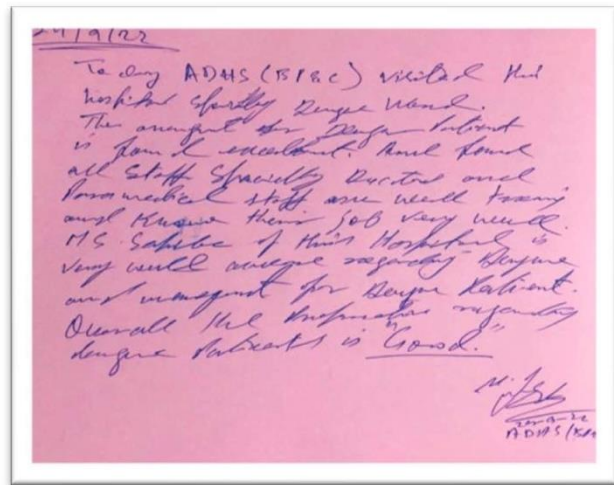 24/9/22
To day ADHS (EP&C) visited this
hospital specially Dengue Ward.
The arrangment for Dengue Patient
is found excellent. And found
all Staff Specially Doctors and
Paramedical staff are well
and Know their job very well.
MS Sahiba of this Hospital is
very well aware regarding Dengue
and managment for Dengue Patient.
Overall the regarding
dengue Patients is "Good."
ADHS